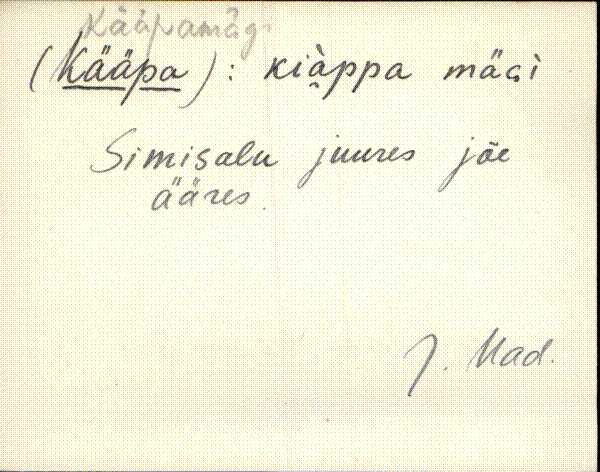 Kääpamägi
(Kääpa): kiàppa mäGi
Simisalu juures jõe
ääres.
J. Mad.